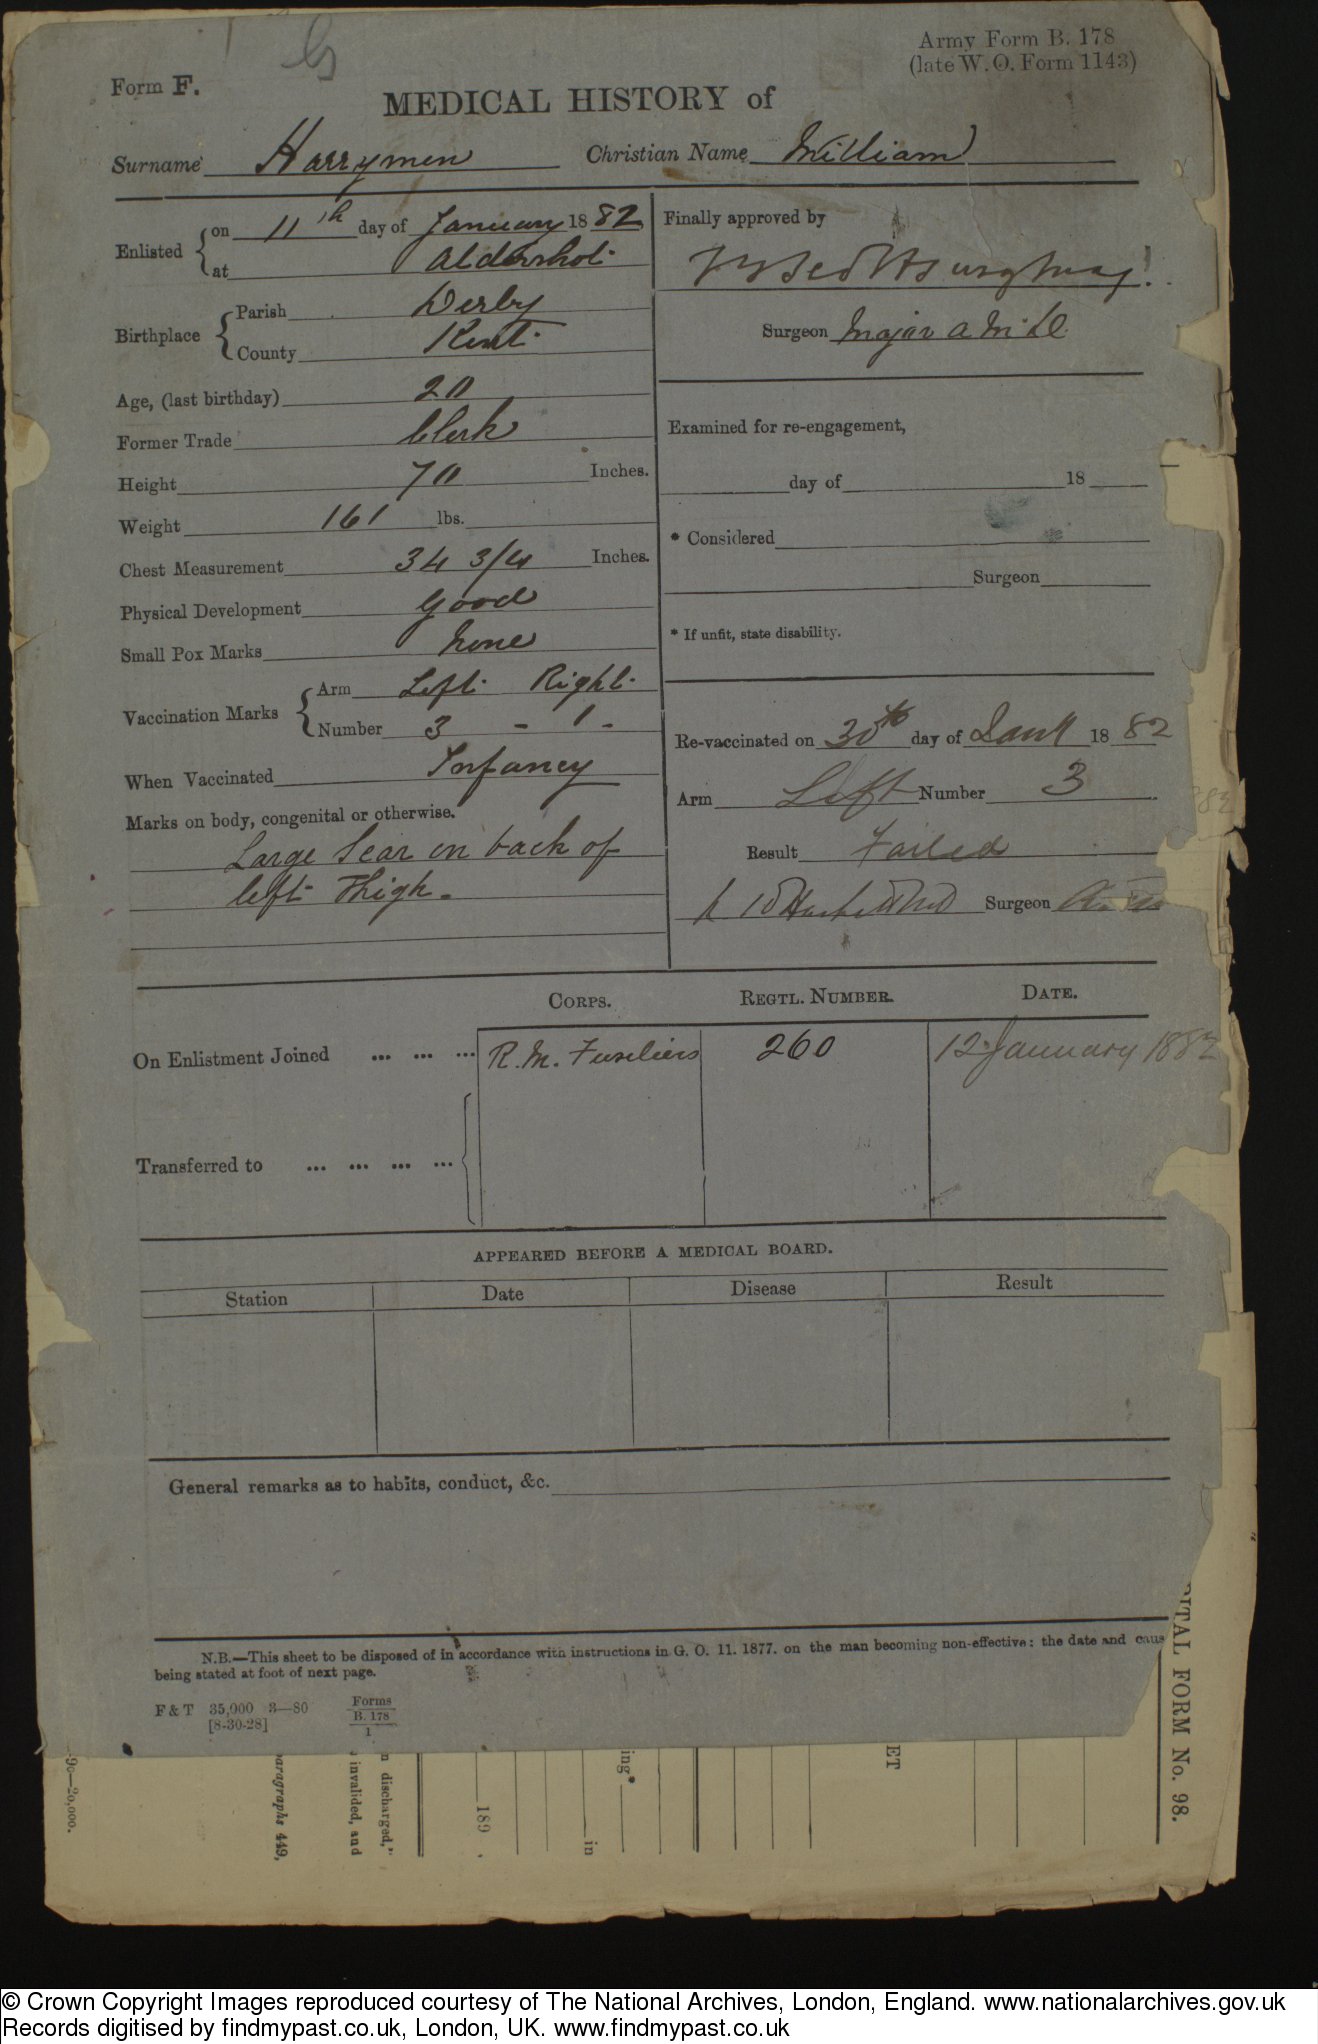 Army Form B. 178
(late W.O. Form 1143)
Form F.
MEDICAL HISTORY of
Surname Harrymen Christian Name William
Enlisted on 11th day of January 1882
at Aldershot
Birthplace Parish Derby
County Kent
Age, (last birthday) 20
Former Trade Clerk
Height 70 Inches.
Weight 161 lbs.
Chest Measurement 34 3/4 Inches.
Physical Development Good
Small Pox Marks None
Vaccination Marks Arm Left Right
Number 3 - 1 -
When Vaccinated Infancy
Marks on body, congenital or otherwise.
Large Scar on back of
left Thigh.
Finally approved by
Surgeon Major
Examined for re-engagement,
day of 18
* Considered
Surgeon
* If unfit, state disability.
Re-vaccinated on 30th day of Jany 1882
Arm Left Number 3
Result Failed
Surgeon
CORPS. REGTL. NUMBER. DATE.
On Enlistment Joined ... ... ... R. M. Fusiliers 260 12 January 1882
Transferred to ... ... ... ...
APPEARED BEFORE A MEDICAL BOARD.
Station Date Disease Result
General remarks as to habits, conduct, &c.
N.B.—This sheet to be disposed of in accordance with instructions in G. O. 11. 1877. on the man becoming non-effective: the date and caus
being stated at foot of next page.
F & T 35,000 3—80
[8-30-28]
Forms
B. 178
1
-90—20,000.
aragraphs 449,
invalided, and
n discharged,"
189
in
ing*
ET
PITAL FORM No. 98.
© Crown Copyright Images reproduced courtesy of The National Archives, London, England. www.nationalarchives.gov.uk
Records digitised by findmypast.co.uk, London, UK. www.findmypast.co.uk